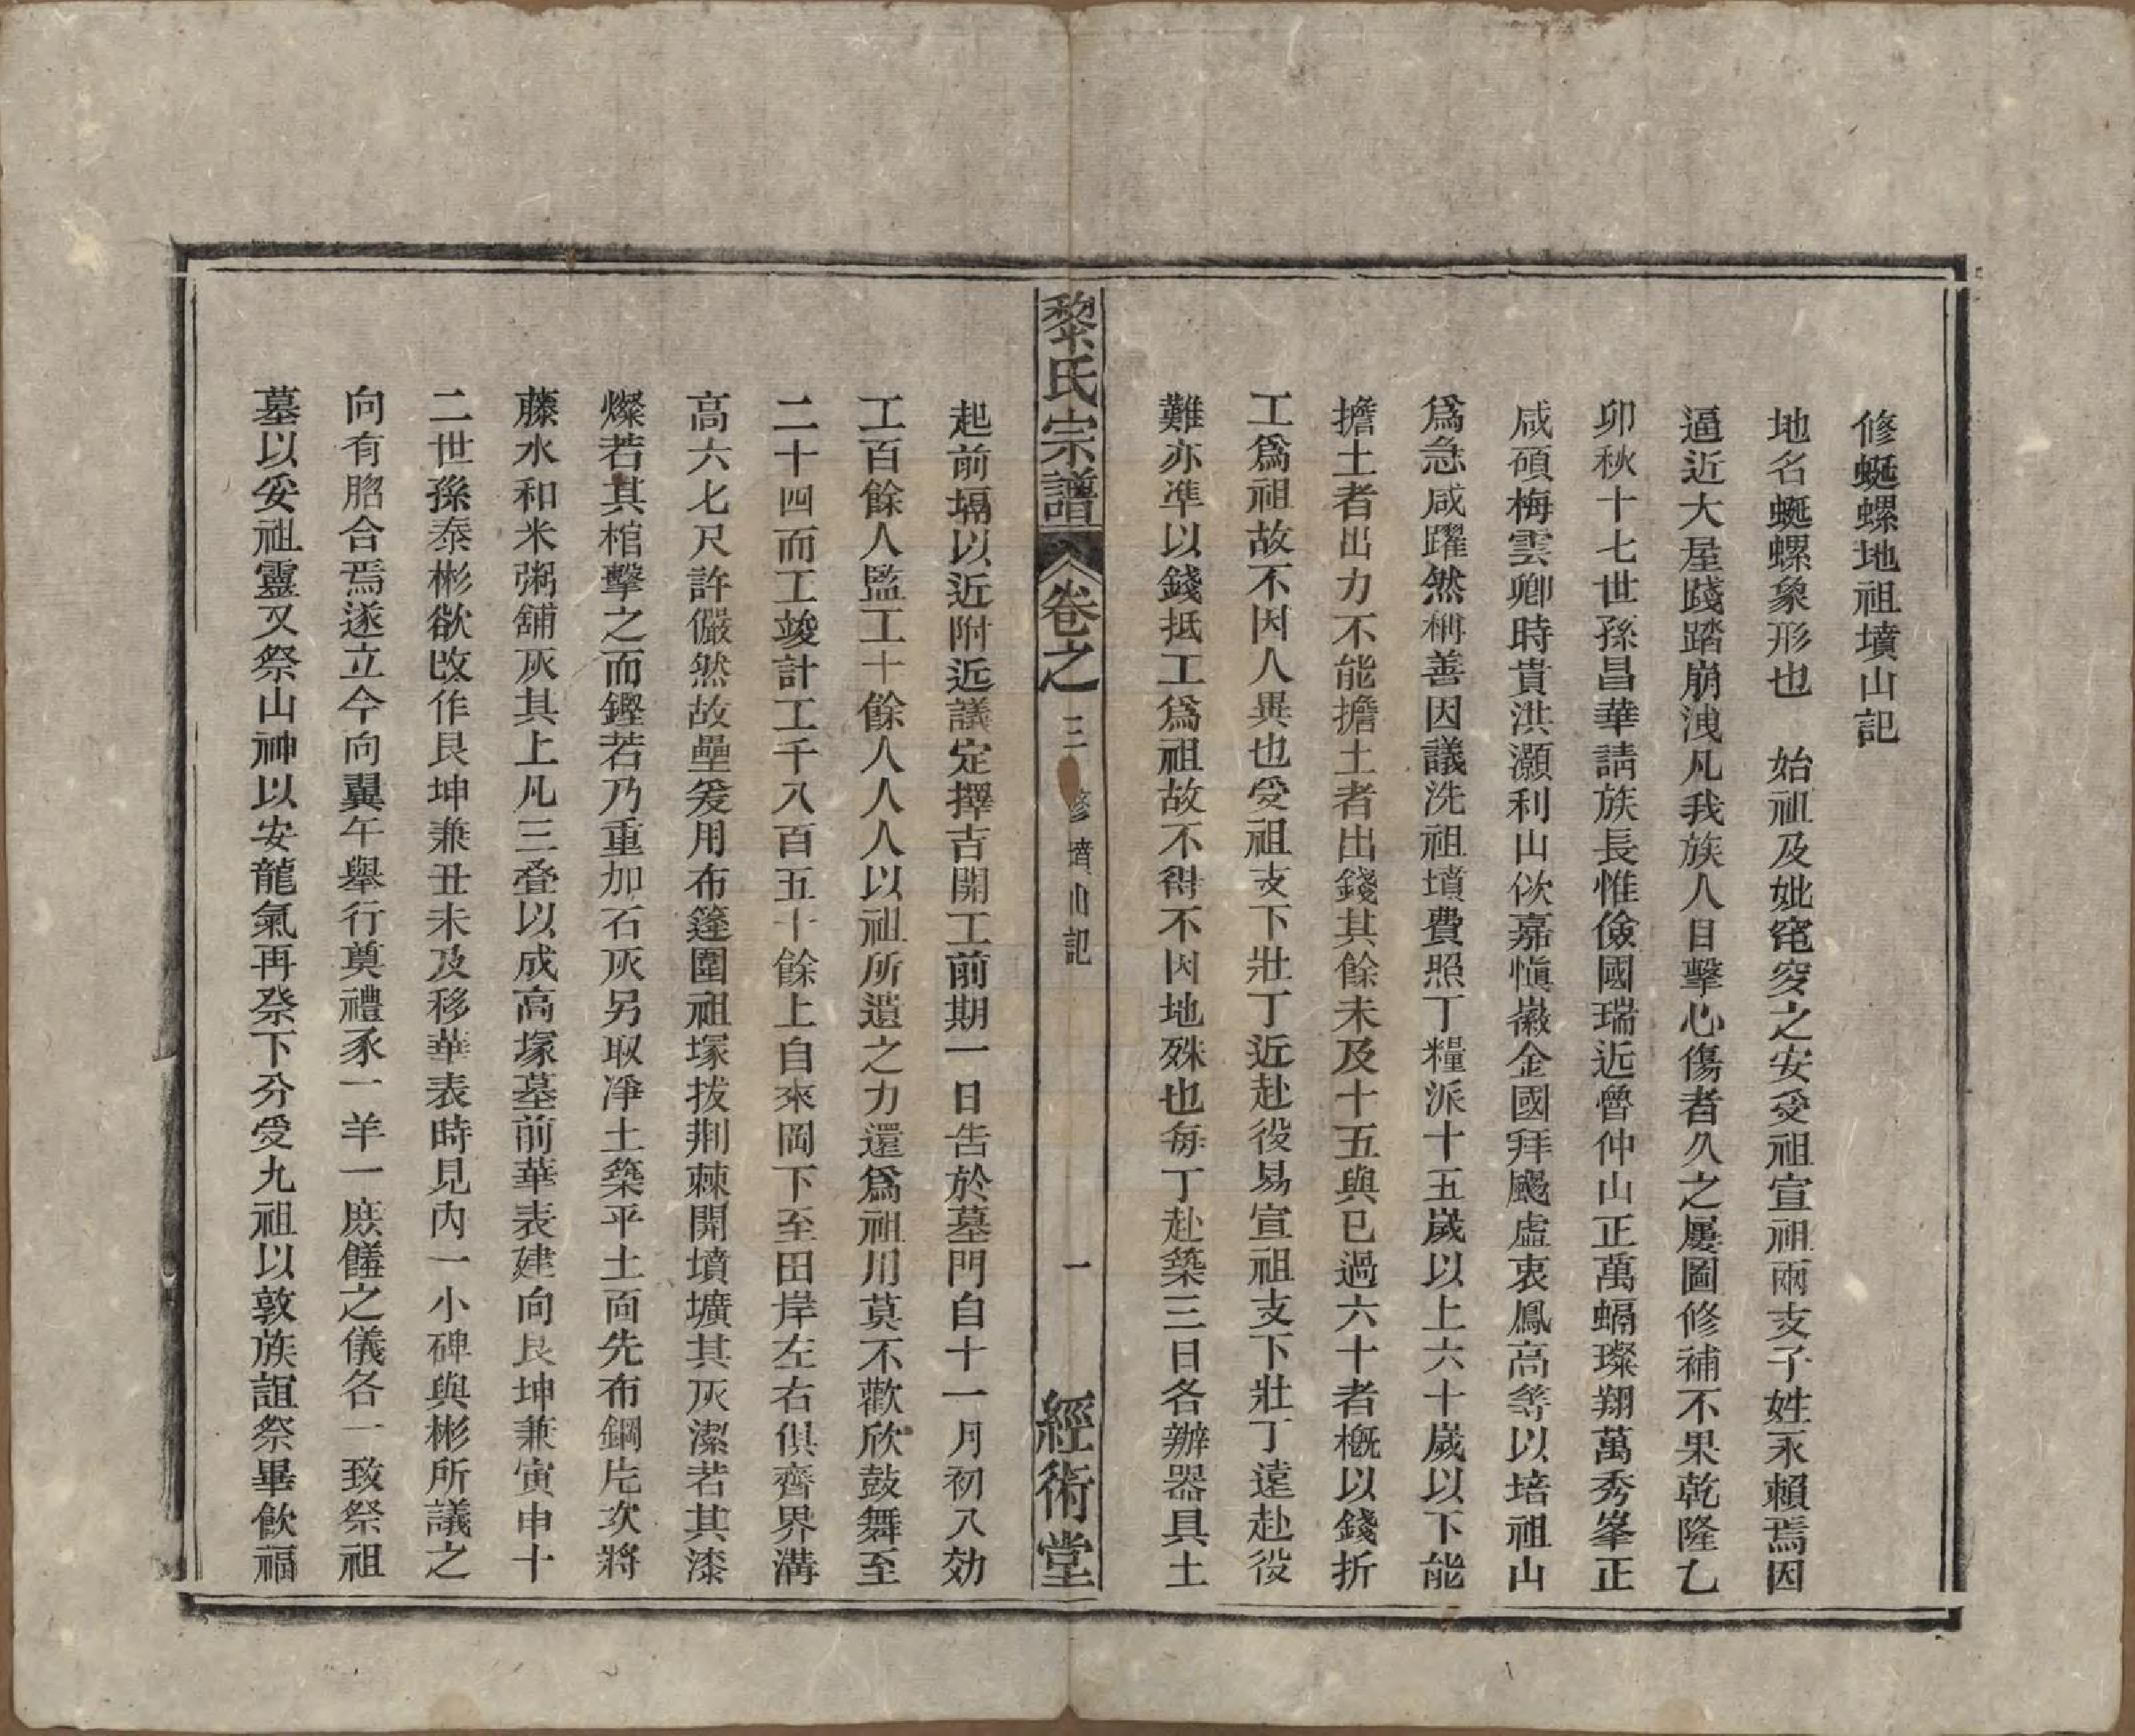 修蜒螺地祖墳山記
地名蜒螺象形也　始祖及妣窀穸之安受祖宣祖兩支子姓永賴焉因
逼近大屋踐踏崩洩凡我族人目擊心傷者久之屢圖修補不果乾隆乙
卯秋十七世孫昌華請族長惟儉國瑞近魯仲山正萬蝸璨翔萬秀峯正
咸碩梅雲卿時貴洪灝利山俶嘉愼嶶金國拜颺虛衷鳳高等以培祖山
爲急咸躍然稱善因議洗祖墳費照丁糧派十五歲以上六十歲以下能
擔土者出力不能擔土者出錢其餘未及十五與已過六十者槪以錢折
工爲祖故不因人異也受祖支下壯丁近赴役易宣祖支下壯丁遠赴役
難亦準以錢抵工爲祖故不得不因地殊也每丁赴築三日各辦器具土
黎氏宗譜　卷之三　修墳山記　一　經術堂
起前塥以近附近議定擇吉開工前期一日告於墓門自十一月初八効
工百餘人監工十餘人人人以祖所遺之力還爲祖用莫不歡欣鼓舞至
二十四而工竣計工千八百五十餘上自來岡下至田岸左右俱齊界溝
高六七尺許儼然故壘爰用布篷圍祖塚拔荆棘開墳壙其灰潔若其漆
燦若其棺擊之而鏗若乃重加石灰另取淨土築平土面先布鋼片次將
藤水和米粥舖灰其上凡三叠以成高塚墓前華表建向艮坤兼寅申十
二世孫泰彬欲改作艮坤兼丑未及移華表時見內一小碑與彬所議之
向有脗合焉遂立今向翼午舉行奠禮豕一羊一庶饈之儀各一致祭祖
墓以妥祖靈又祭山神以安龍氣再祭下分受九祖以敦族誼祭畢飮福